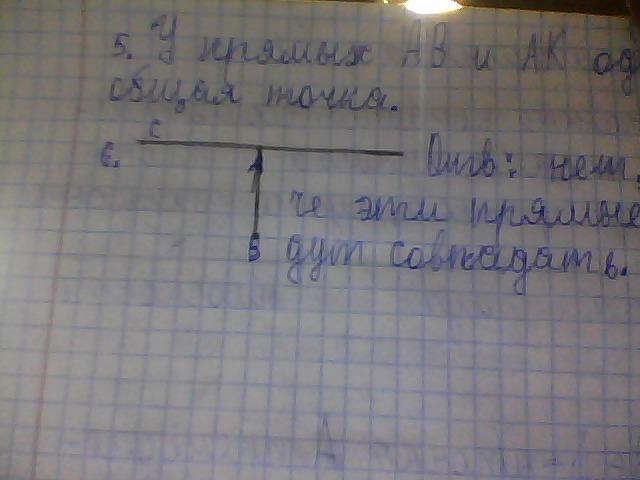 5. У прямых АВ и АК од
общая точка.
6. С Отв: нет,
А че эти прямые
В дут совпадать.